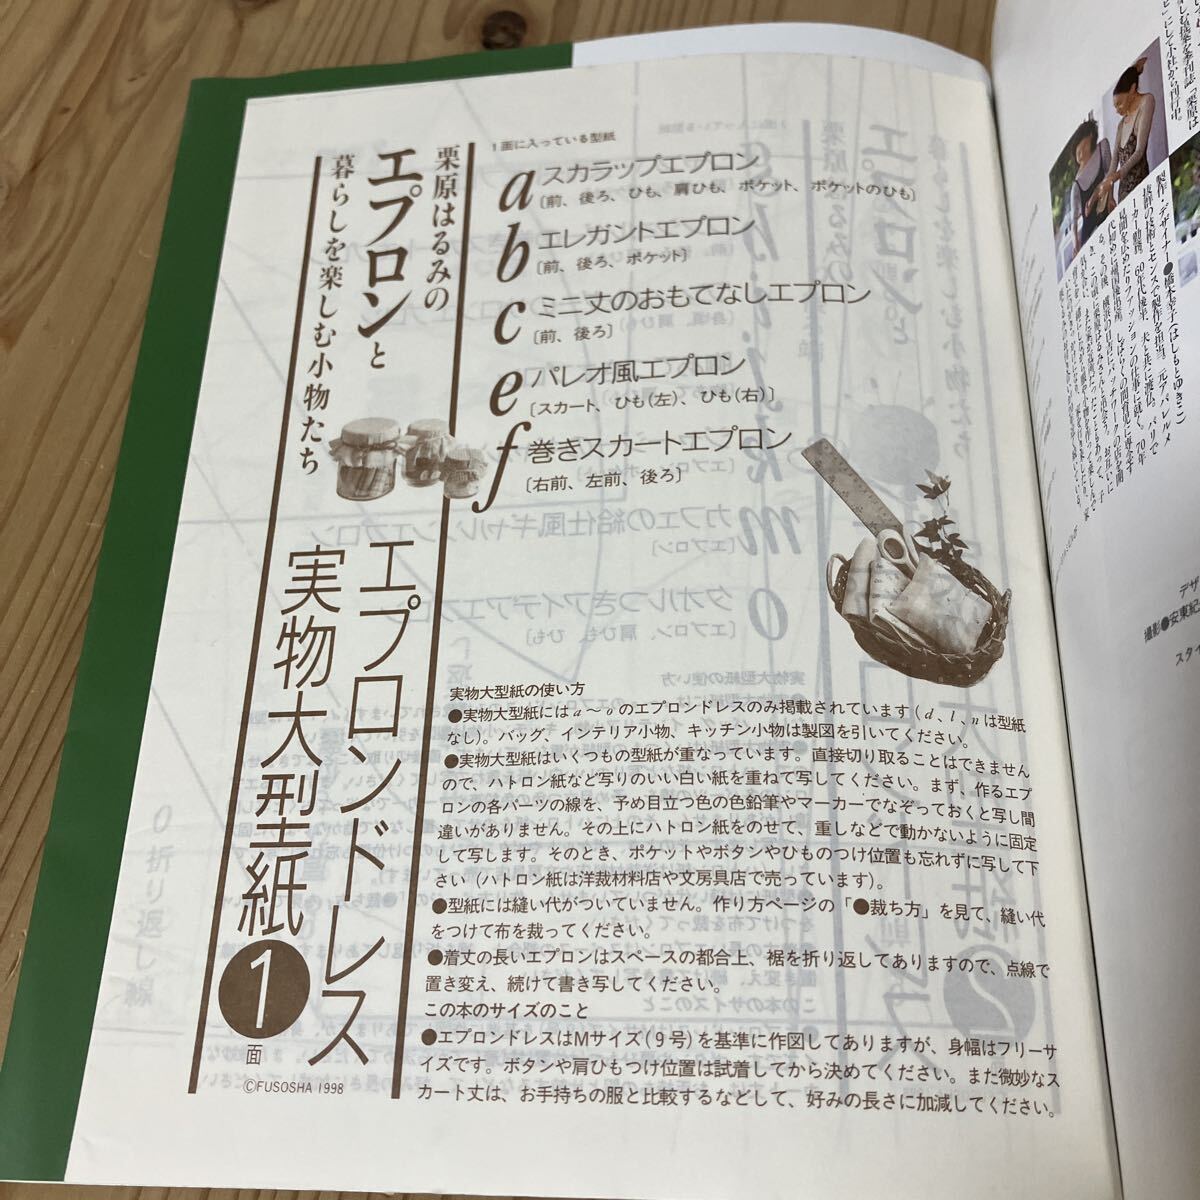 栗原はるみの
エプロンと
暮らしを楽しむ小物たち
エプロンドレス
実物大型紙
1
面
©FUSOSHA 1998
1面に入っている型紙
a
スカラップエプロン
〔前、後ろ、ひも、肩ひも、ポケット、ポケットのひも〕
b
エレガントエプロン
〔前、後ろ、ポケット〕
c
ミニ丈のおもてなしエプロン
〔前、後ろ〕
e
パレオ風エプロン
〔スカート、ひも(左)、ひも(右)〕
f
巻きスカートエプロン
〔右前、左前、後ろ〕
実物大型紙の使い方
●実物大型紙にはa〜oのエプロンドレスのみ掲載されています(d、l、nは型紙
なし)。バッグ、インテリア小物、キッチン小物は製図を引いてください。
●実物大型紙はいくつもの型紙が重なっています。直接切り取ることはできません
ので、ハトロン紙など写りのいい白い紙を重ねて写してください。まず、作るエプ
ロンの各パーツの線を、予め目立つ色の色鉛筆やマーカーでなぞっておくと写し間
違いがありません。その上にハトロン紙をのせて、重しなどで動かないように固定
して写します。そのとき、ポケットやボタンやひものつけ位置も忘れずに写して下
さい(ハトロン紙は洋裁材料店や文房具店で売っています)。
●型紙には縫い代がついていません。作り方ページの「●裁ち方」を見て、縫い代
をつけて布を裁ってください。
●着丈の長いエプロンはスペースの都合上、裾を折り返してありますので、点線で
置き変え、続けて書き写してください。
この本のサイズのこと
●エプロンドレスはMサイズ(9号)を基準に作図してありますが、身幅はフリーサ
イズです。ボタンや肩ひもつけ位置は試着してから決めてください。また微妙なス
カート丈は、お手持ちの服と比較するなどして、好みの長さに加減してください。
製作・デザイナー●橋本幸子(はしもとゆきこ)
デザ
撮影●安東紀
スタイ